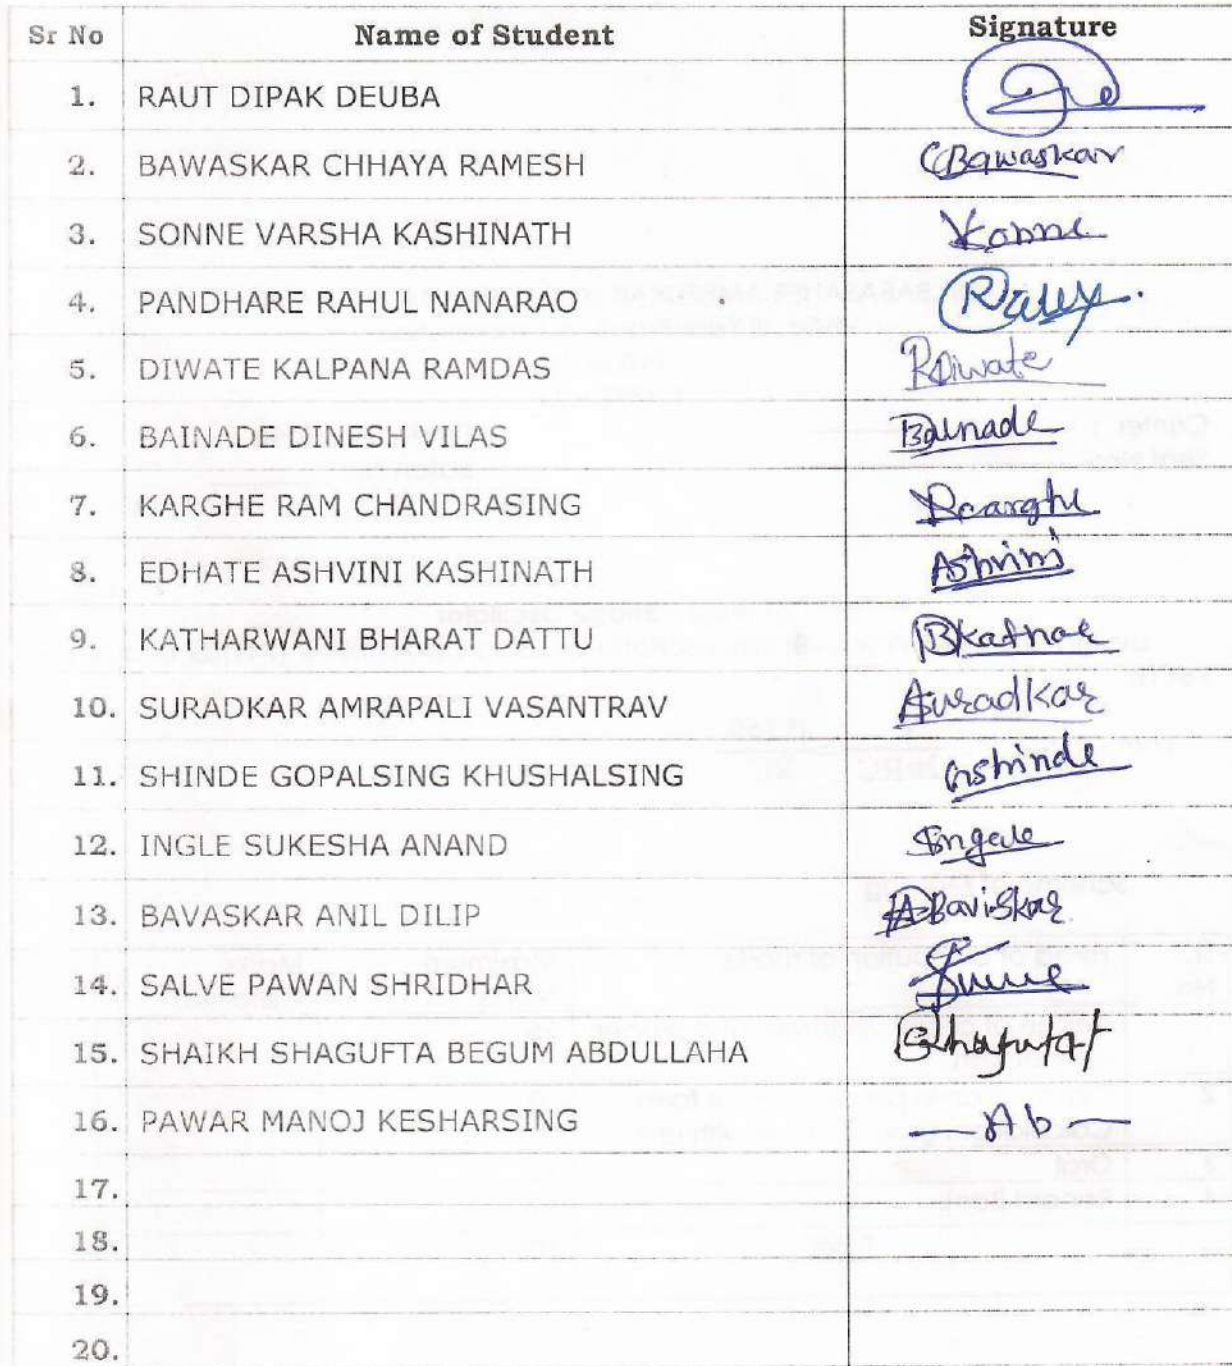 Sr No Name of Student Signature
1. RAUT DIPAK DEUBA
2. BAWASKAR CHHAYA RAMESH CBawaskar
3. SONNE VARSHA KASHINATH
4. PANDHARE RAHUL NANARAO
5. DIWATE KALPANA RAMDAS RDiwate
6. BAINADE DINESH VILAS Bainade
7. KARGHE RAM CHANDRASING
8. EDHATE ASHVINI KASHINATH Ashvini
9. KATHARWANI BHARAT DATTU
10. SURADKAR AMRAPALI VASANTRAV Auradkar
11. SHINDE GOPALSING KHUSHALSING Gshinde
12. INGLE SUKESHA ANAND
13. BAVASKAR ANIL DILIP ABaviskar
14. SALVE PAWAN SHRIDHAR
15. SHAIKH SHAGUFTA BEGUM ABDULLAHA
16. PAWAR MANOJ KESHARSING — Ab —
17.
18.
19.
20.